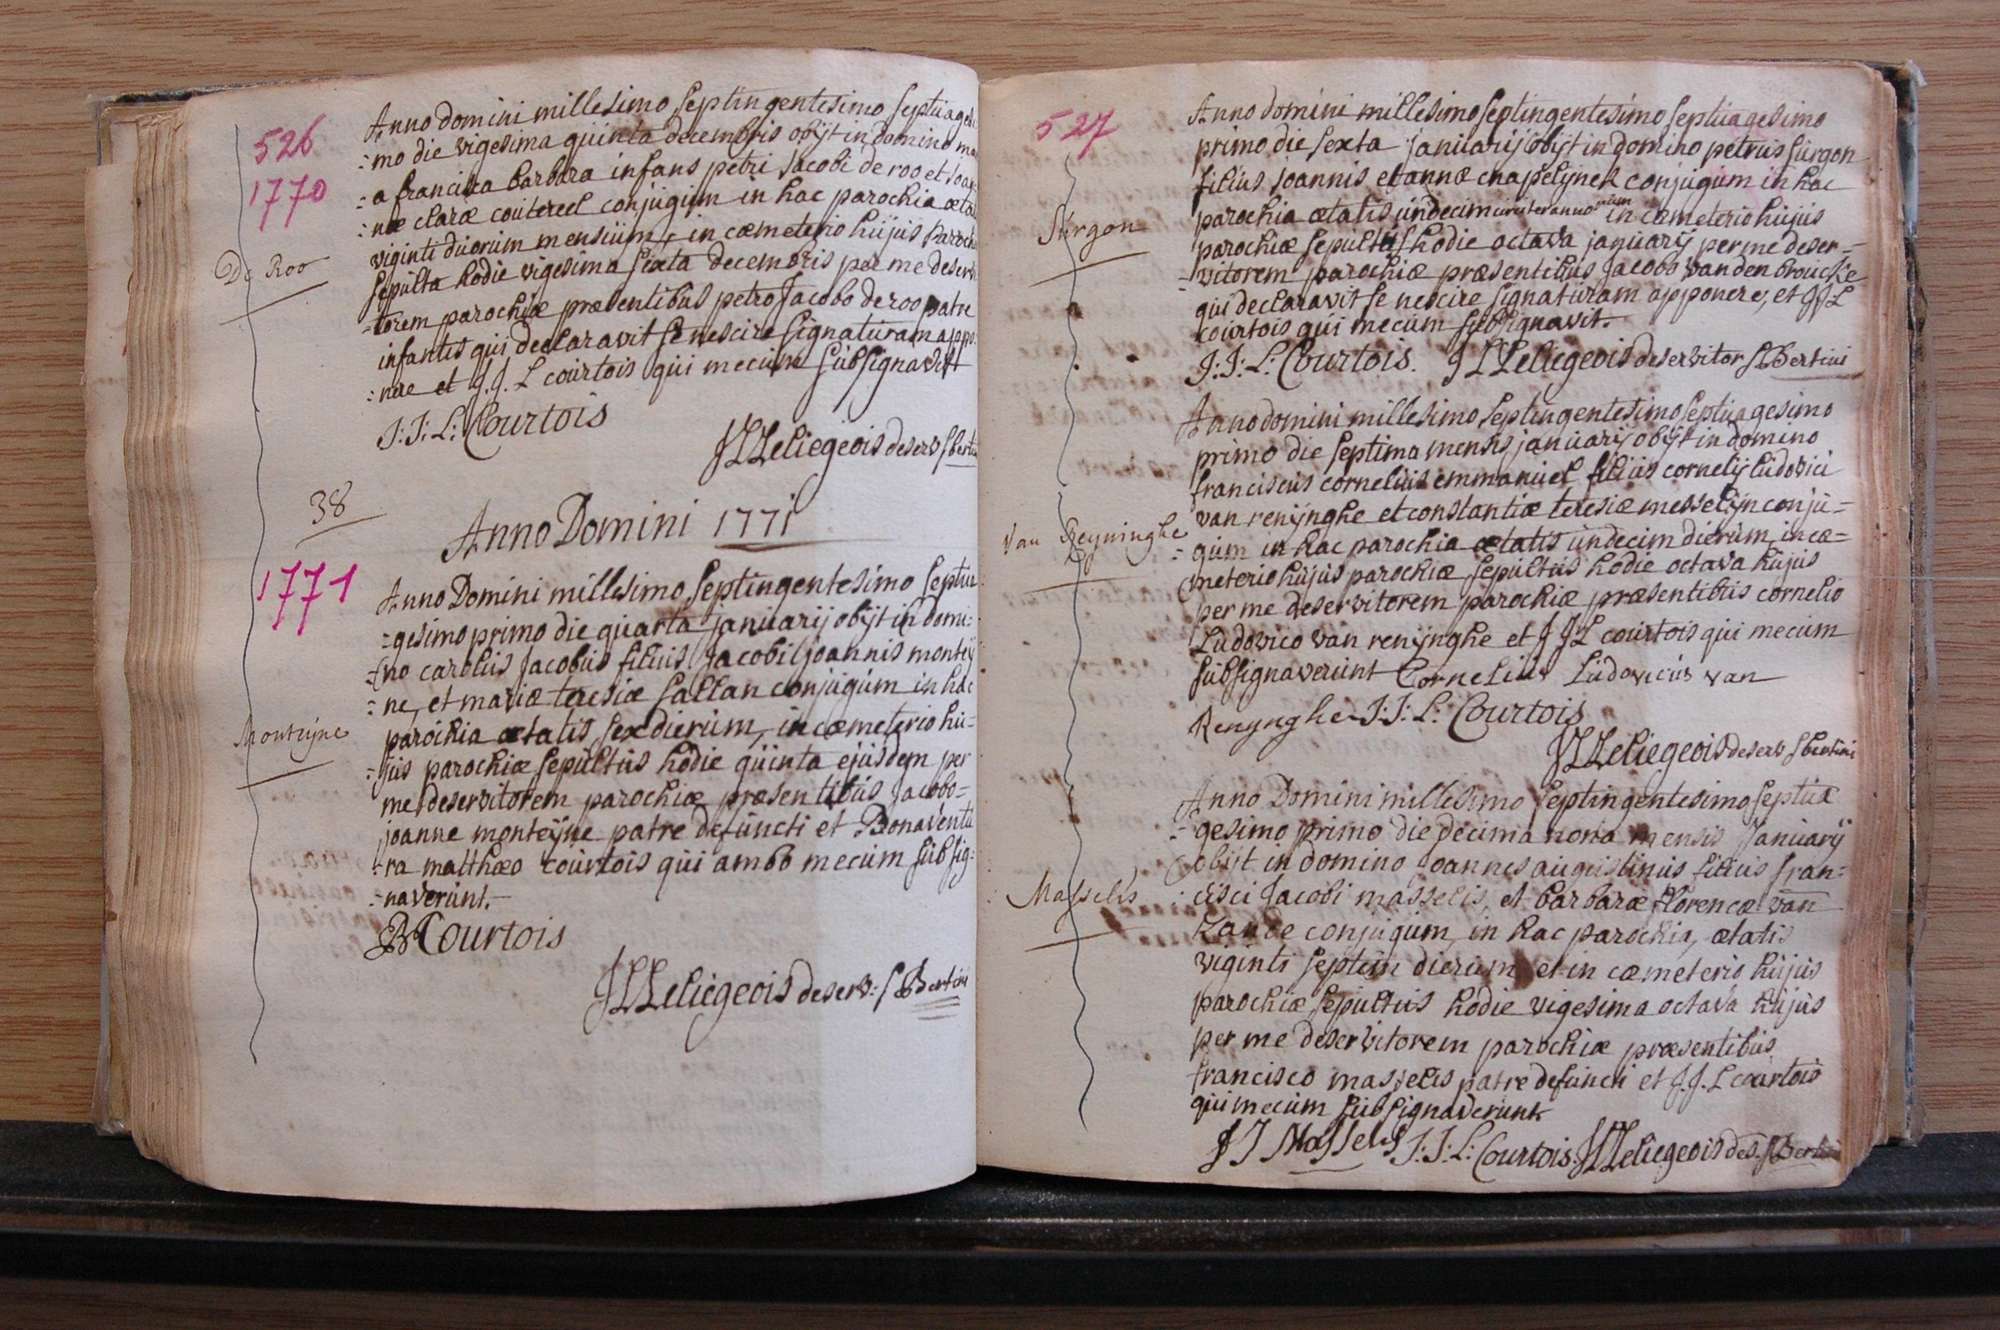 526
1770
De Roo
Anno domini millesimo septingentesimo septuage
=mo die vigesima quinta decembris obijt in domino ma
=a francisca barbara infans petri Jacobi de roo et Joan
=næ claræ coutereel conjugum in hac parochia æta
viginti duorum mensium, in cæmeterio hujus paroch
sepulta hodie vigesima sexta decembris per me deserv
=torem parochiæ præsentibus petro Jacobo de roo patre
infantis qui declaravit se nescire signaturam appo
=nere et J.J.L courtois qui mecum subsignavit
J:J:L: Courtois
JLLeliegeois deserv S berti
38
Anno Domini 1771
1771
Montcijne
Anno Domini millesimo septingentesimo septua
=gesimo primo die quarta januarij obijt in domi=
=no carolus Jacobus filius Jacobi joannis monteij
=ne, et mariæ teresiæ fallan conjugum in hac
parochia ætatis sex dierum, in cæmeterio hu=
=jus parochiæ sepultus hodie quinta ejusdem per
me deservitorem parochiæ præsentibus Jacobo=
joanne monteijne patre defuncti et Bonaventu
=ra matthæo courtois qui ambo mecum subsig=
=naverunt.
BMCourtois
JLLeliegeois deserv: S Bertini
527
Surgon
Anno domini millesimo septingentesimo septuagesimo
primo die sexta januarij obijt in domino petrus surgon
filius Joannis et annæ chapelynck conjugum in hac
parochia ætatis undecim circiter annorum in cæmeterio hujus
parochiæ sepultus hodie octava januarij per me deser=
=vitorem parochiæ præsentibus Jacobo vanden broucke
qui declaravit se nescire signaturam apponere, et JJL
courtois qui mecum subsignavit.
J:J:L: Courtois. JLLeliegeois deservitor S Bertini
Van Reyninghe
Anno domini millesimo septingentesimo septuagesimo
primo die septima mensis januarij obijt in domino
franciscus cornelius emmanuel filius cornelij ludovici
van renijnghe et constantiæ teresiæ messelijn conju=
=gum in hac parochia ætatis undecim dierum, in cæ=
meterio hujus parochiæ sepultus hodie octava hujus
per me deservitorem parochiæ præsentibus cornelio
Ludovico van renijnghe et JJL courtois qui mecum
subsignaverunt Cornelius Ludovicus van
Renynghe J:J:L: Courtois
JLLeliegeois deserv S bertini
Masselis
Anno Domini millesimo septingentesimo septua
=gesimo primo die decima nona mensis Januarij
obijt in domino Joannes augustinus filius fran=
=cisci Jacobi masselis, et barbaræ florencæ van
Zande conjugum, in hac parochia, ætatis
viginti septem dierum et in cæmeterio hujus
parochiæ sepultus hodie vigesima octava hujus
per me deservitorem parochiæ præsentibus
francisco masselis patre defuncti et J.J.L courtois
qui mecum subsignaverunt
FJ Masselis J:J:L: Courtois. JLLeliegeois des. S Bertini